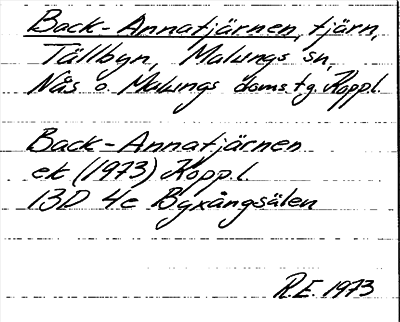 Back-Annatjärnen, tjärn,
Tällbyn, Malungs sn,
Nås o. Malungs doms.tg. Koppl.
Back-Annatjärnen
ek (1973) Koppl
13D 4e Byxångsälen
R.E. 1973